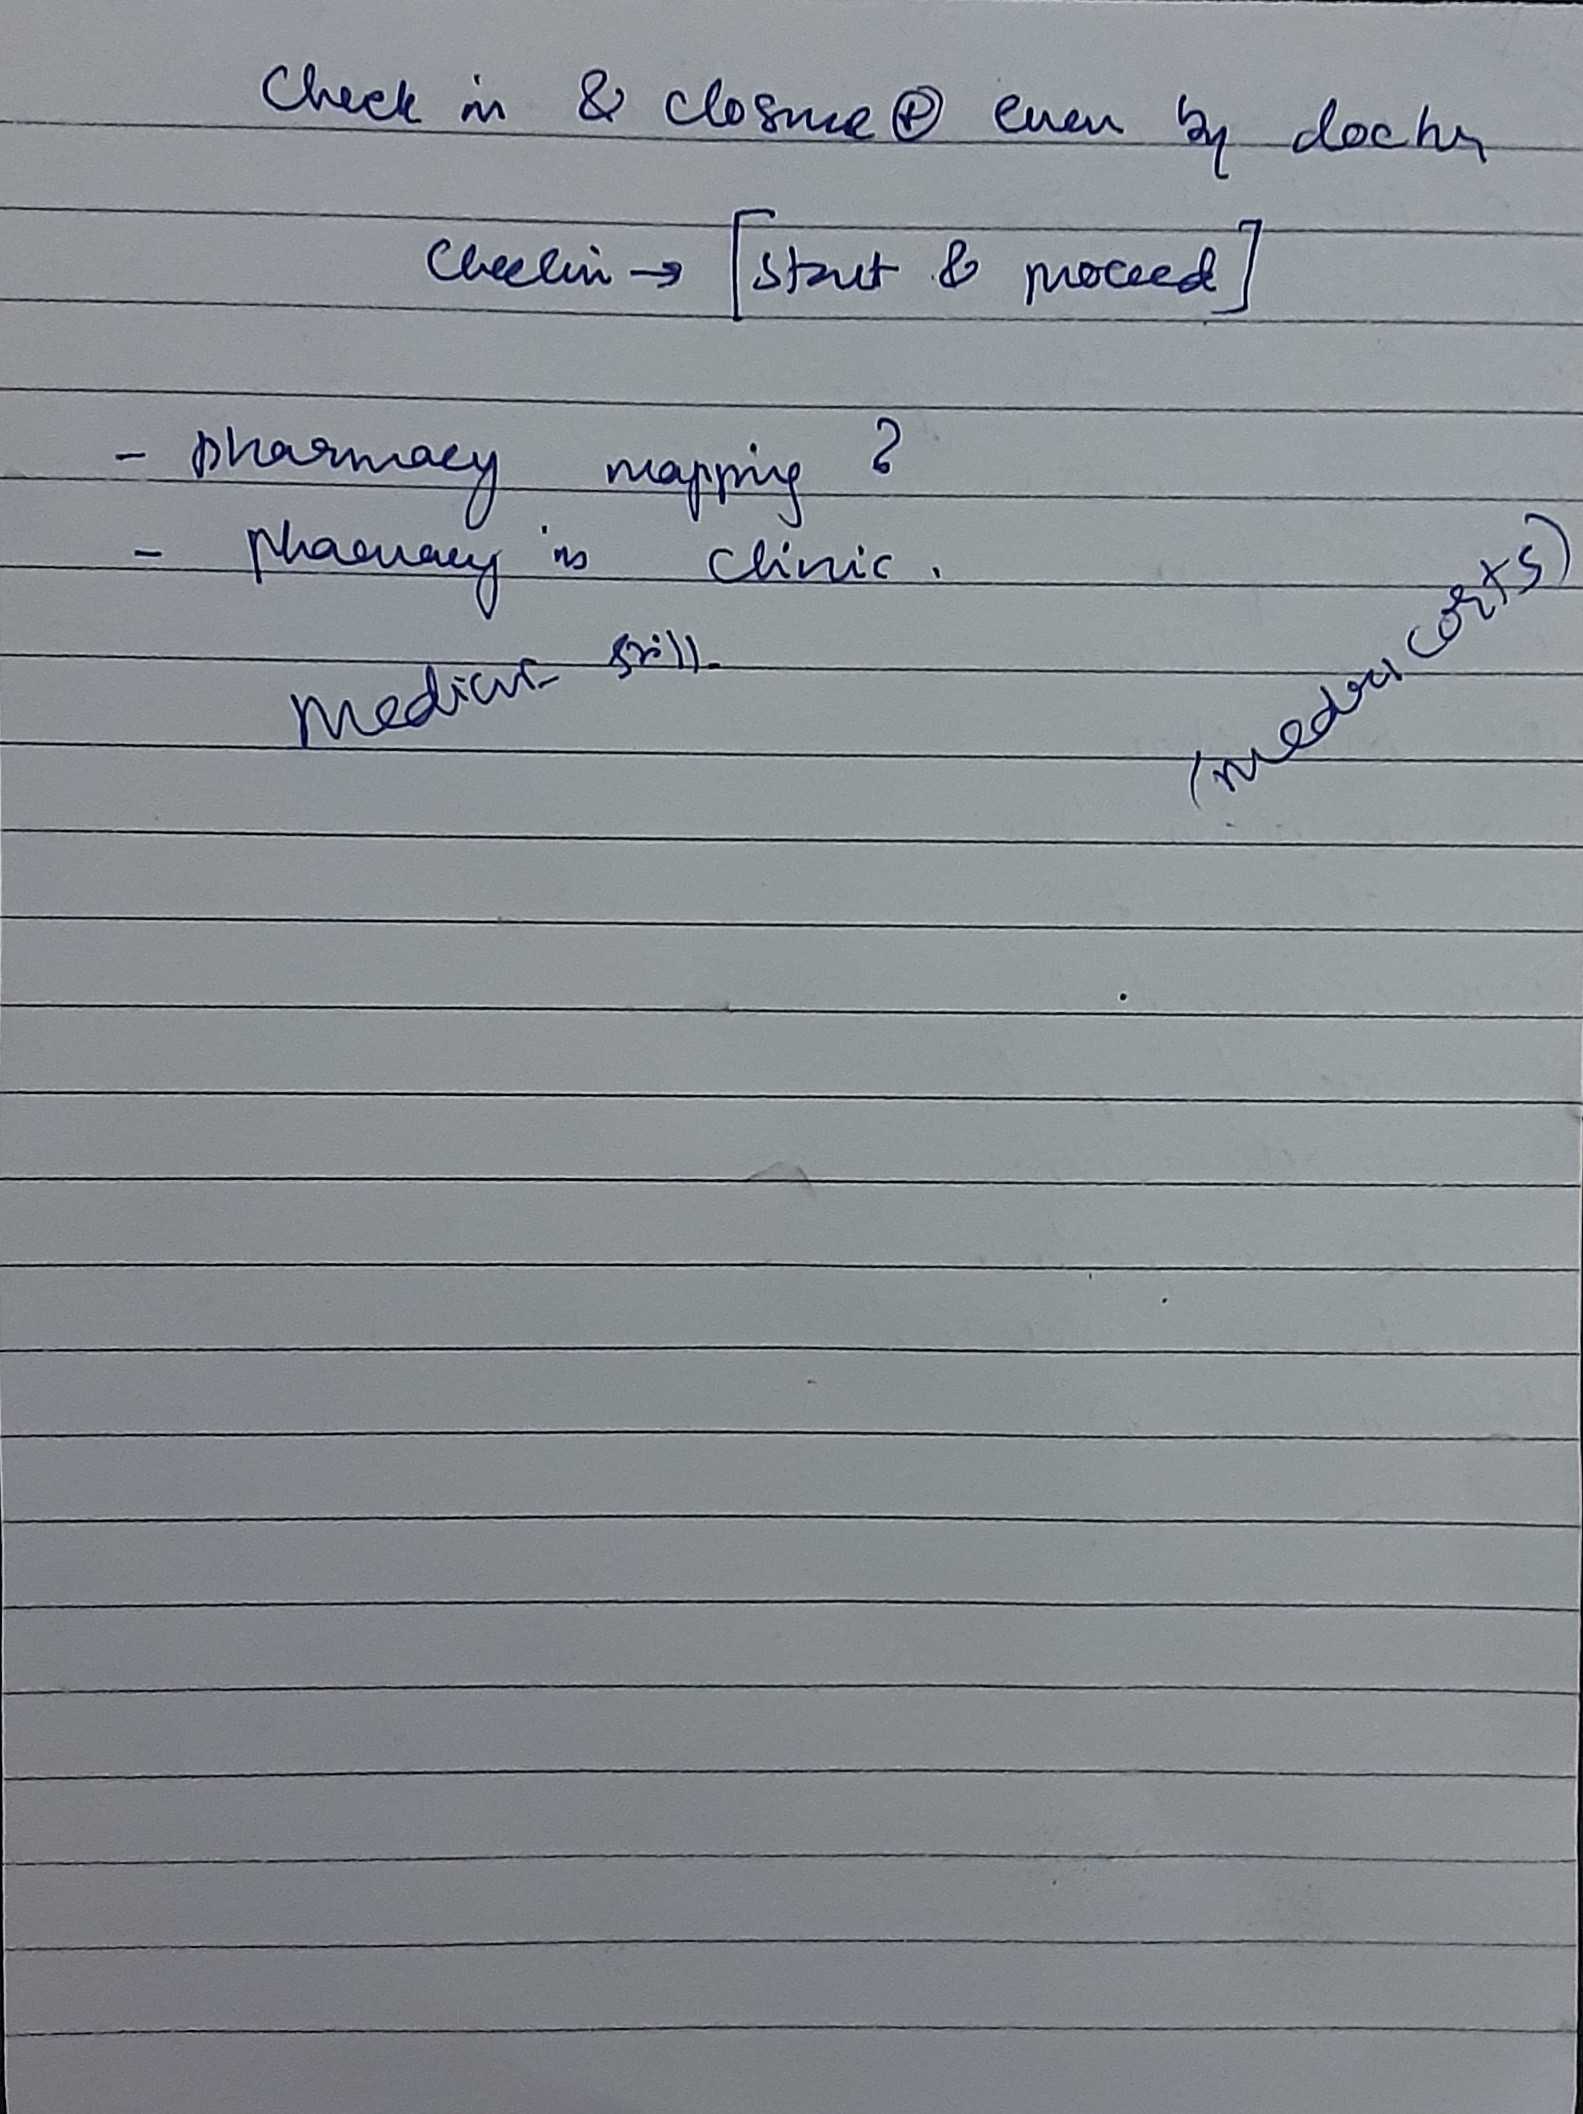 Check in & closure Ⓟ even by doctor
Checkin → [start & proceed]
- pharmacy mapping ?
- pharmacy in clinic.
Medicine